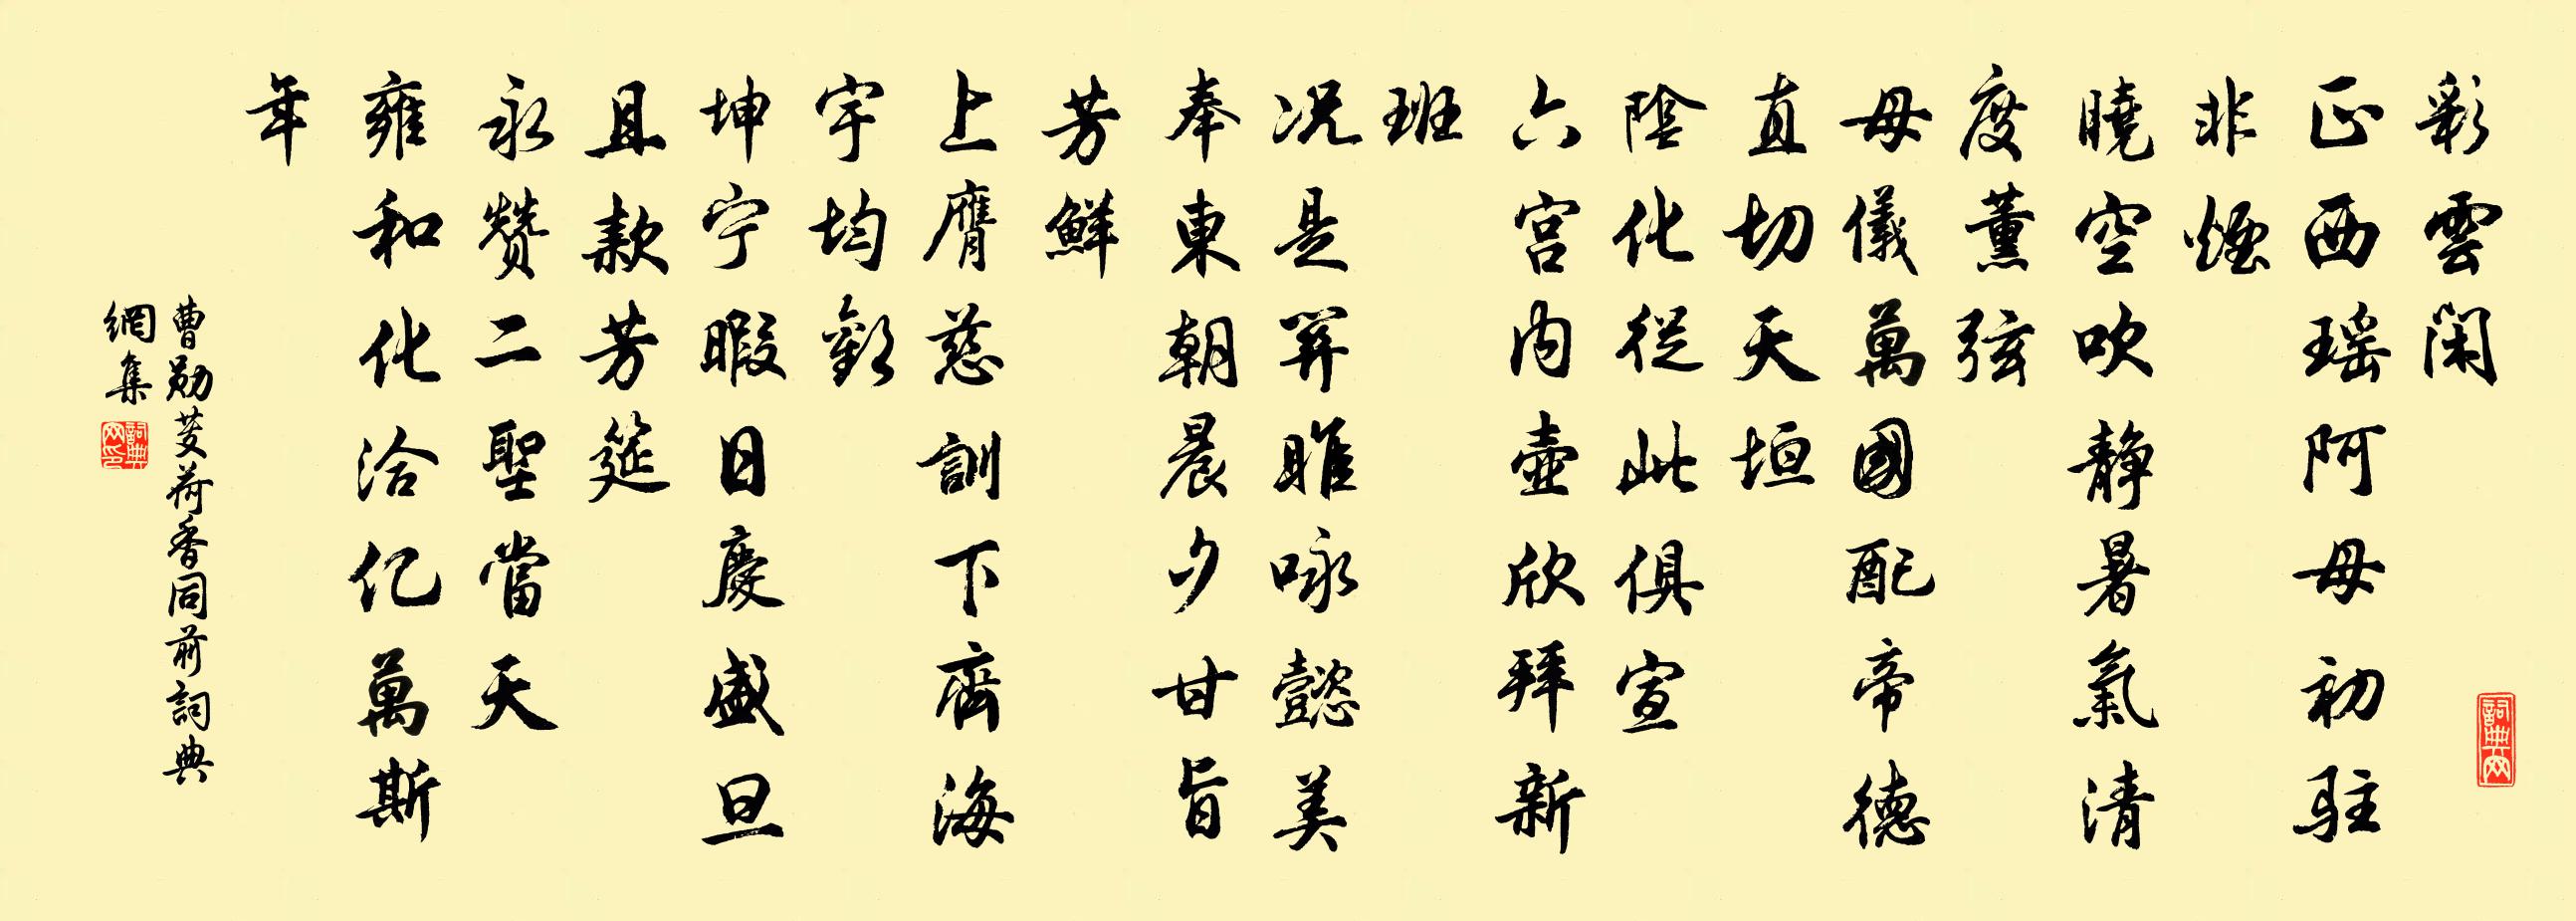 彩雲閑
正西瑶阿母初駐
非煙
曉空吹靜暑氣清
度薰弦
母儀萬國配帝德
直切天垣
陰化從此俱宣
六宮内壺欣拜新
班
况是笄睢咏懿美
奉東朝晨夕甘旨
芳鮮
上膺慈訓下齊海
宇均歡
坤宁暇日慶盛旦
且款芳筵
永赞二聖當天
雍和化洽亿萬斯
年
曹勛芰荷香同前詞典
網集
詞典网
詞典网印